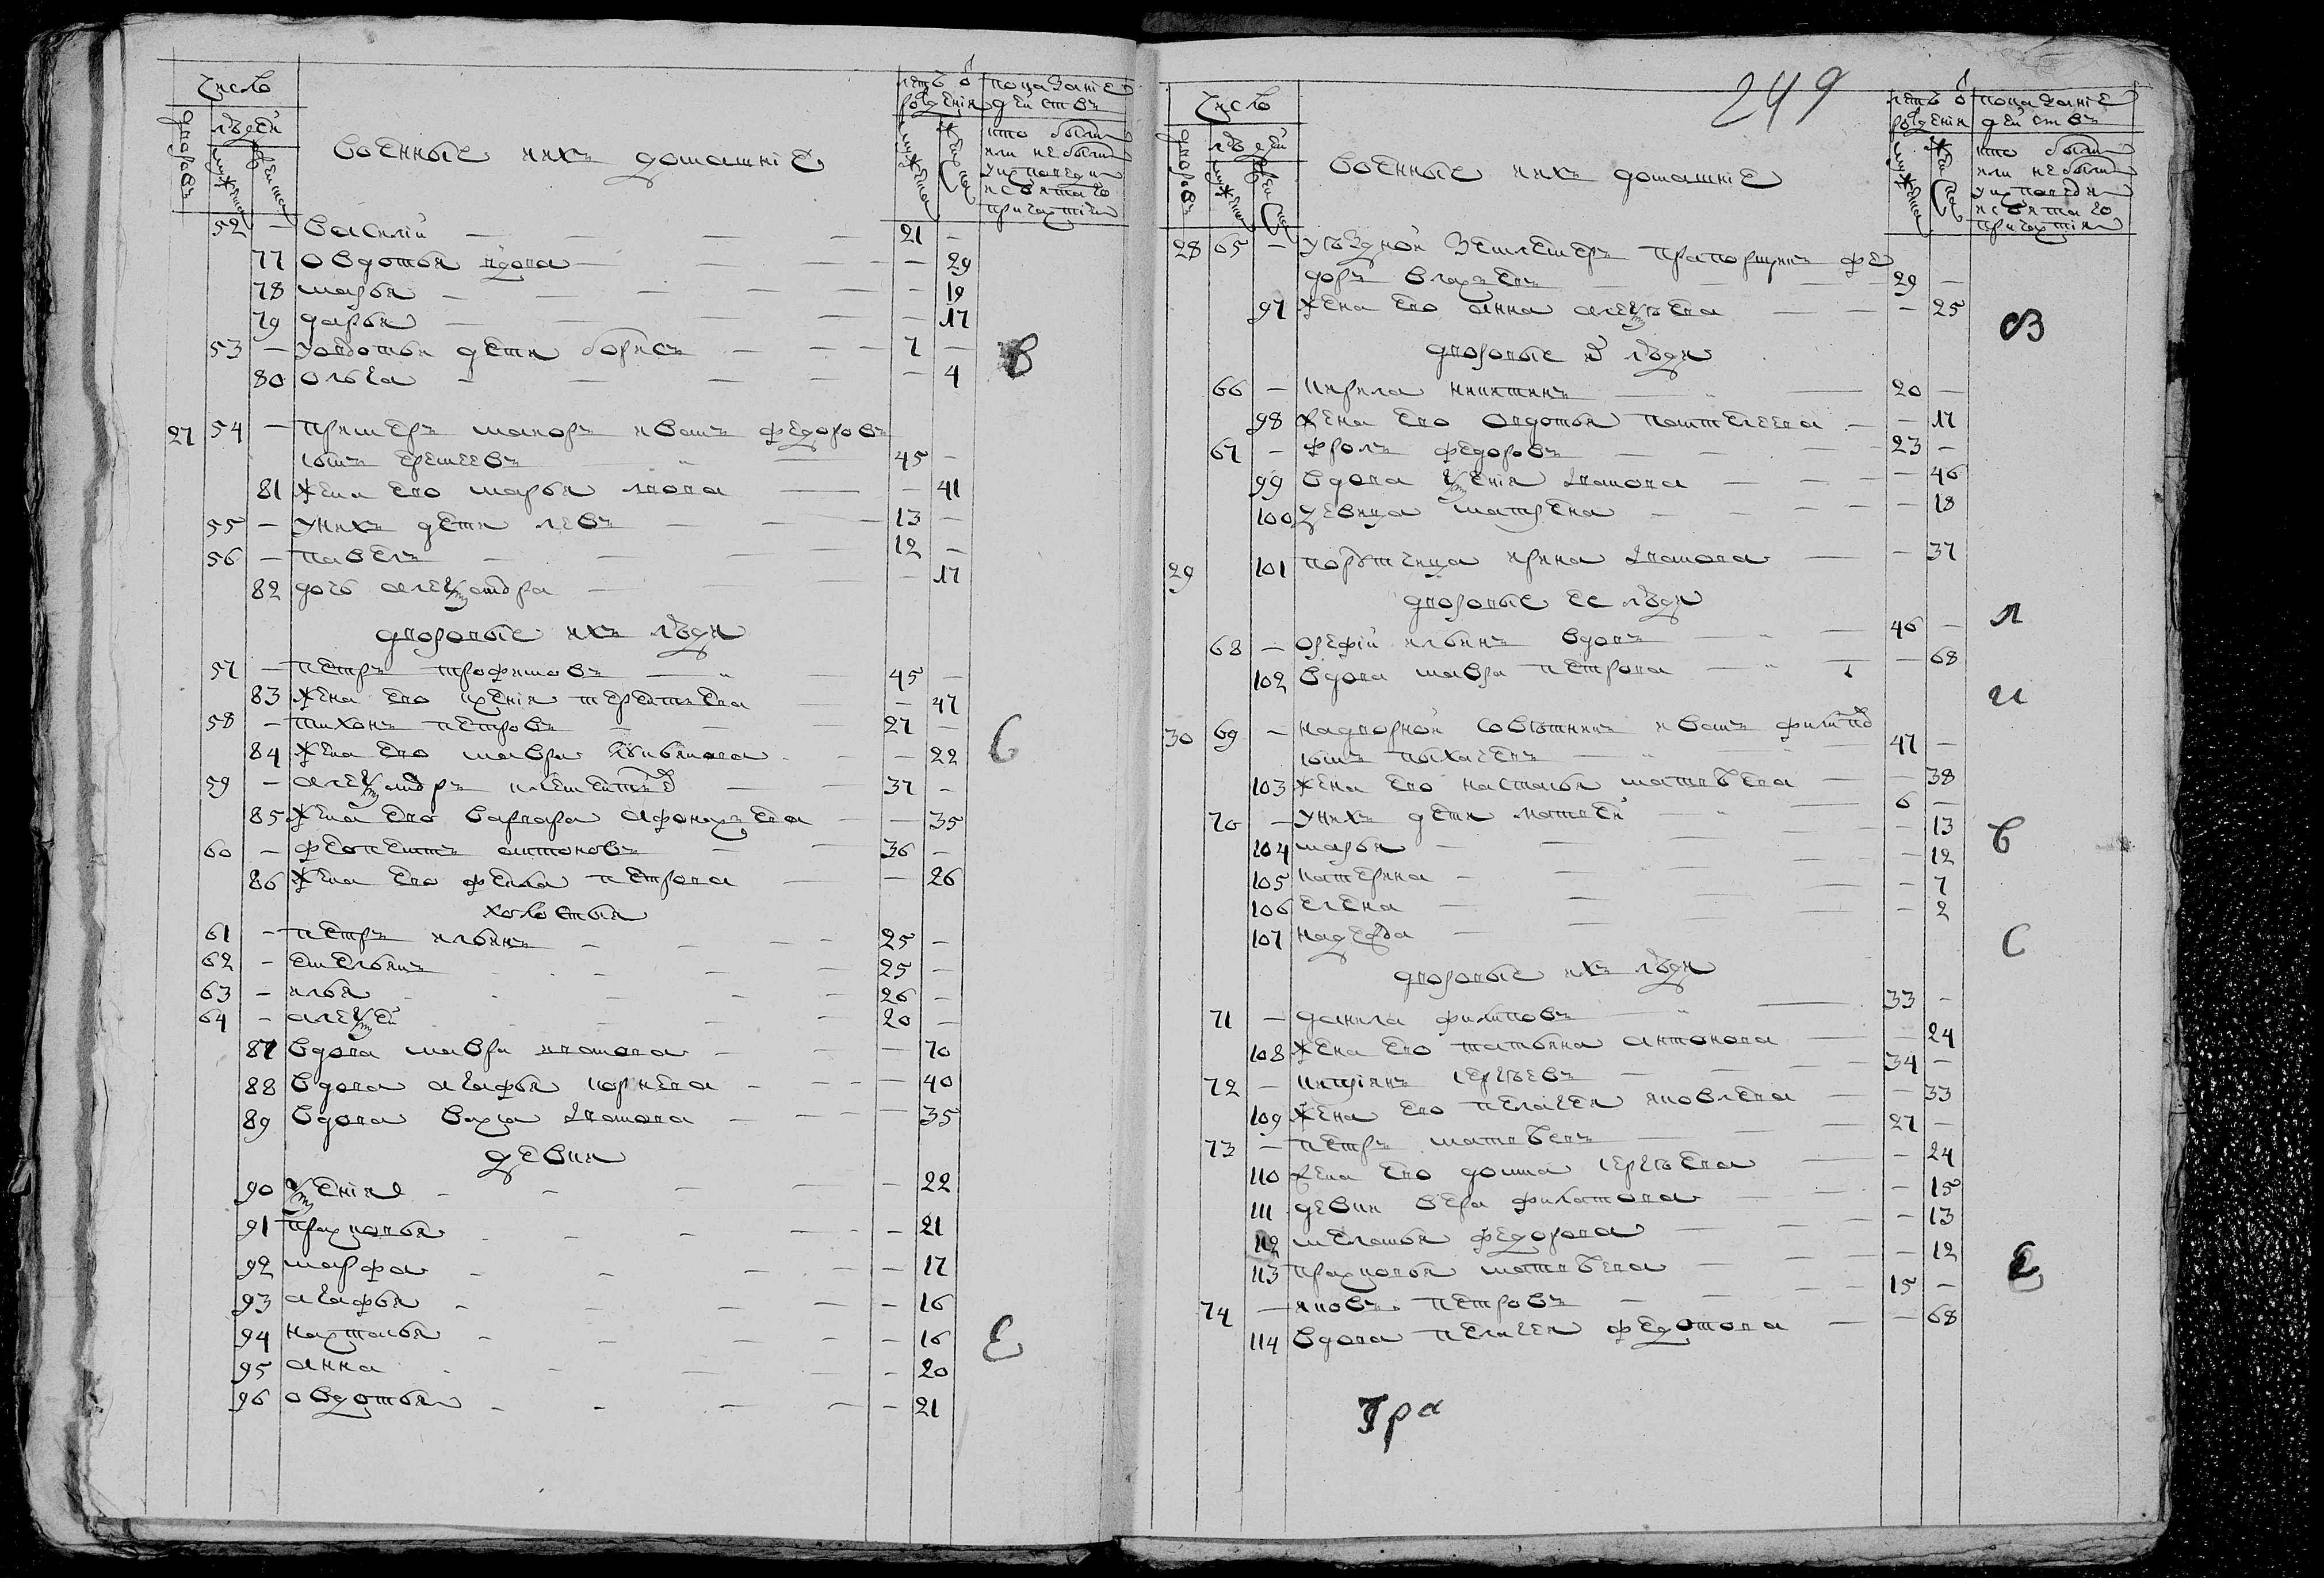 число
дворовъ
людей
мужеска
женска
военные иихъ домашніе
летъ ѿ рожденія
мужеска
женска
показаніе действъ
кто были
или небыли
уисповеди
исвятаго
причастия
52 — василий — 21 —
77 овдотья — 29
78 марья — 19
79 дарья — 17
53 — уовдотьи дети борисъ — 7 —
80 ольга — 4
в
27 54 — примеръ маиоръ иванъ федоровъ
сынъ еремеевъ — 45 —
81 жена ево марья — 41
55 — унихъ дети левъ — 13 —
56 — павелъ — 12 —
82 дочь александра — 17
дворовые ихъ люди
57 — петръ трофимовъ — 45 —
83 жена ево ксения терентьева — 47
58 — тихонъ петровъ — 27 —
84 жена ево мавра — 22
с
59 — александръ клементьевъ — 37 —
85 жена ево варвара афонасьева — 35
60 — феопемптъ антоновъ — 36 —
86 жена ево фекла петрова — 26
холостыя
61 — петръ ильинъ — 25 —
62 — емельянъ — 25 —
63 — илья — 26 —
64 — алексей — 20 —
87 вдова мавра иванова — 70
88 вдова агафья корнева — 40
89 вдова васса иванова — 35
девки
90 ксения — 22
91 прасковья — 21
92 марфа — 17
93 агафья — 16
94 настасья — 16
95 анна — 20
96 овдотья — 21
Е
249
число
дворовъ
людей
мужеска
женска
военные иихъ домашніе
летъ ѿ рожденія
мужеска
женска
показаніе действъ
кто были
или небыли
уисповеди
исвятаго
причастия
28 65 — уѣздной землемеръ прапорщикъ фе
доръ власьевъ — 29 —
97 жена ево анна алексѣева — 25
в
дворовые ѣ люди
66 — кирила никитинъ — 20 —
98 жена ево овдотья пантелеева — 17
67 — фролъ федоровъ — 23 —
99 вдова ксения иванова — 46
100 девица матрена — 18
29 101 порутчица ирина иванова — 37
дворовые ее люди
л
68 — орефий ильинъ вдовъ — 46 —
102 вдова мавра петрова — 68
и
30 69 — надворной советникъ иванъ филипов
сынъ пыхачевъ — 47 —
103 жена ево настасья матвѣева — 38
70 — унихъ дети матвей — 6 —
104 марья — 13
в
105 катерина — 12
106 елена — 7
107 надежда — 2
с
дворовые ихъ люди
71 — данила филиповъ — 33 —
108 жена ево татьяна антонова — 24
72 — киприянъ сергѣевъ — 34 —
109 жена ево пелагея яковлева — 33
73 — петръ матвѣевъ — 27 —
110 жена ево домна сергѣева — 24
111 девки вера филатова — 15
112 меланья федорова — 13
113 прасковья матвѣева — 12
Е
74 — яковъ петровъ — 15 —
114 вдова пелагея федотова — 68
Гра